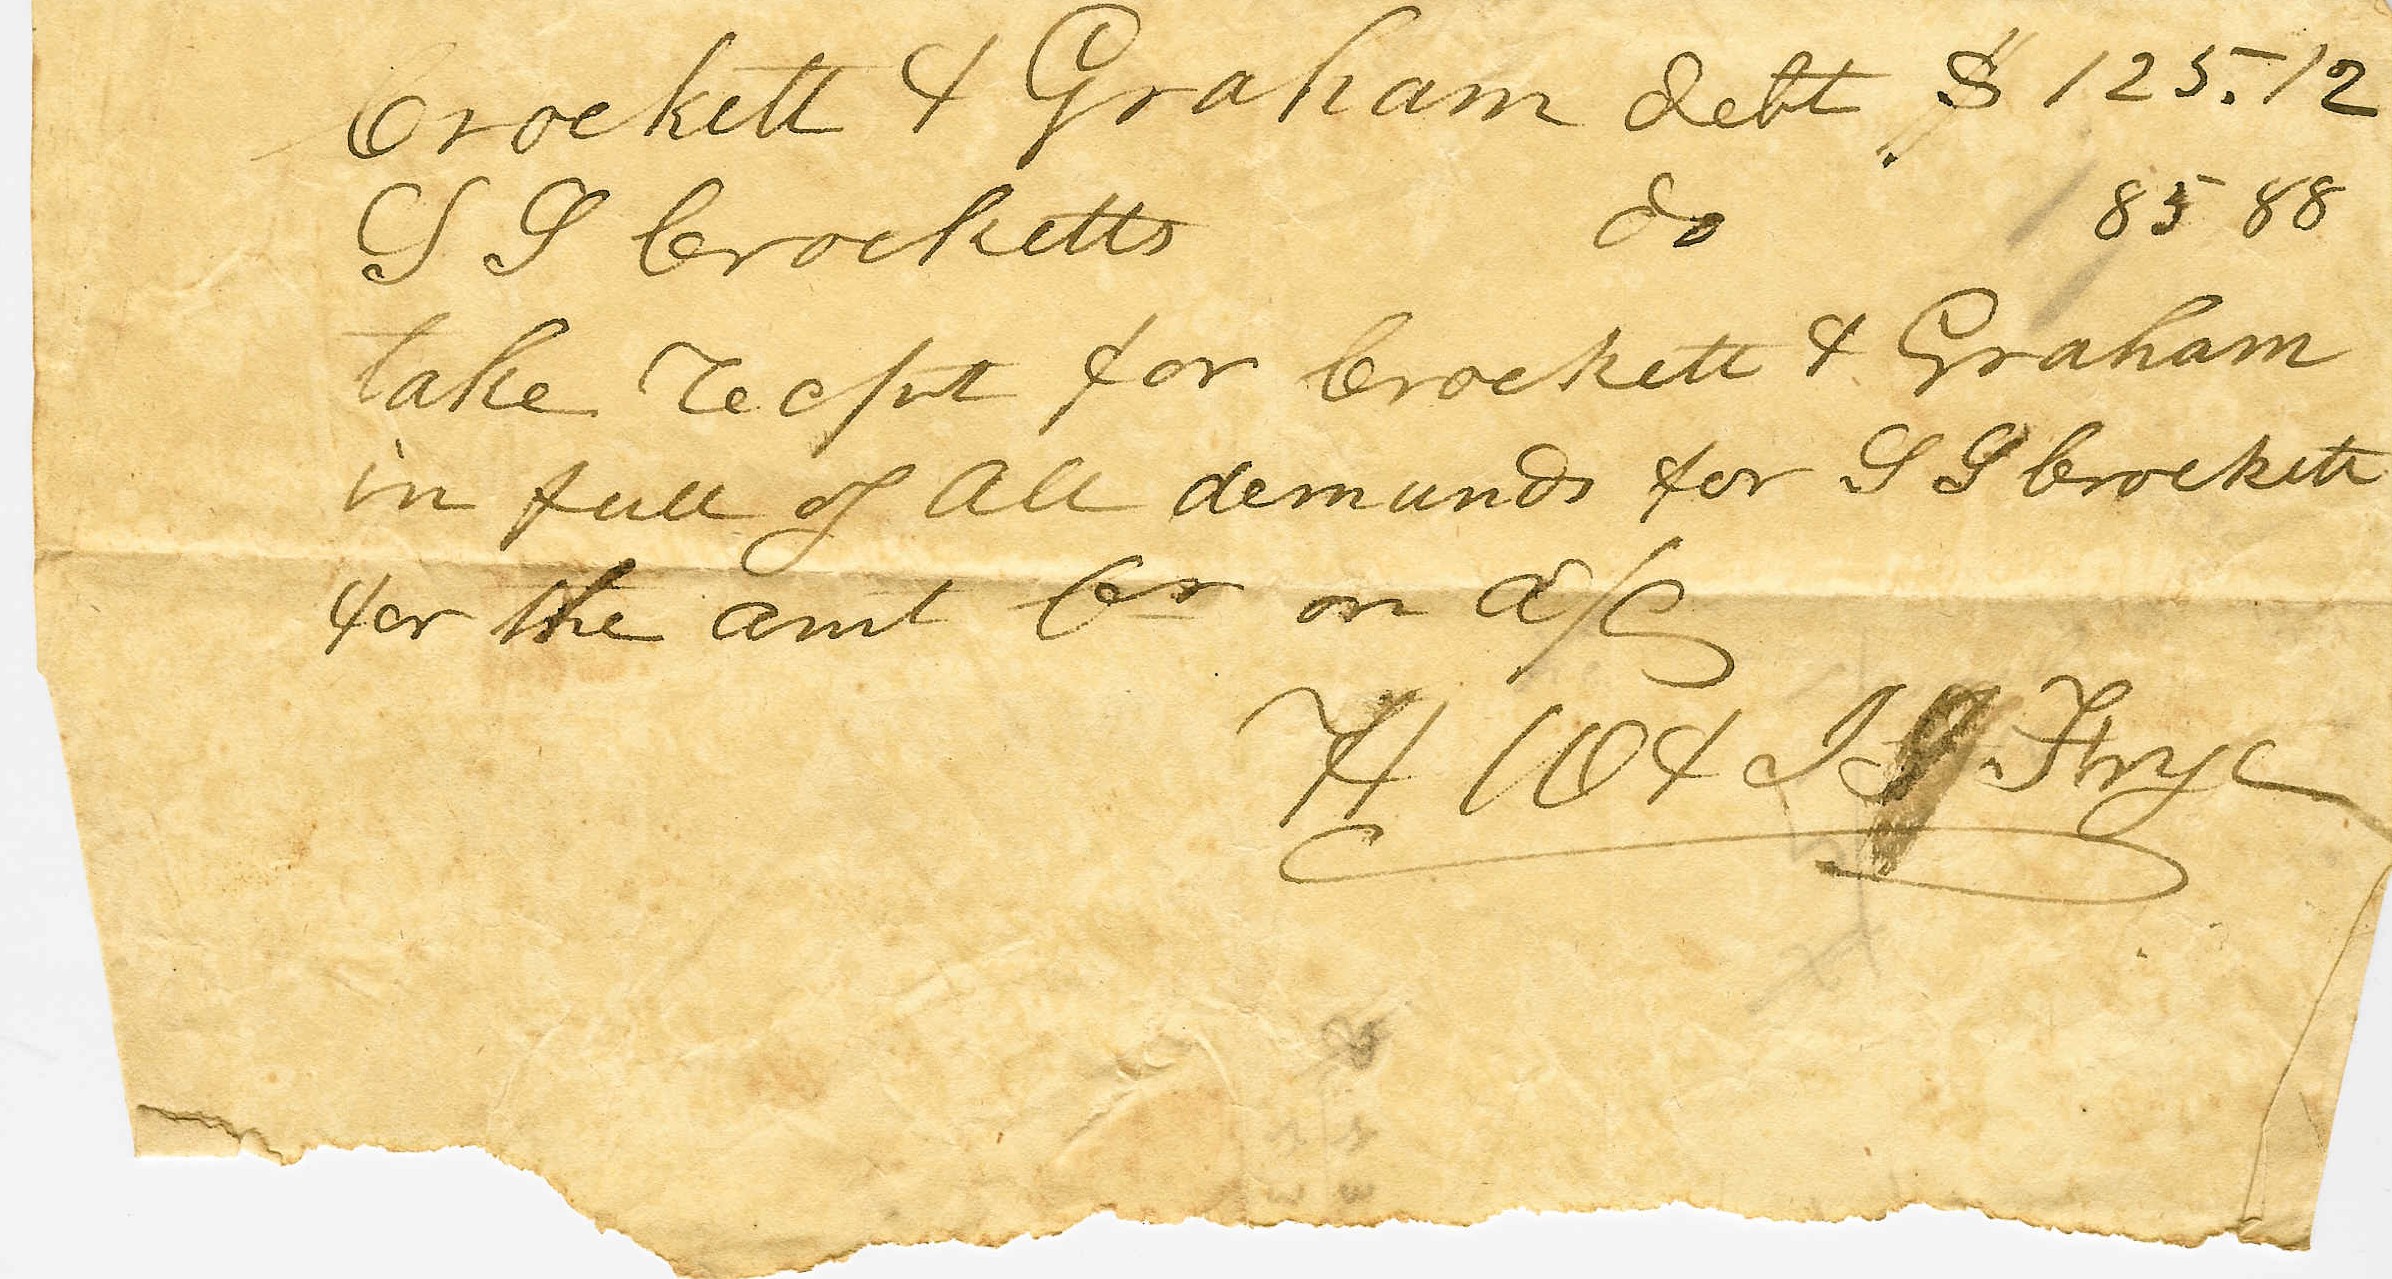 Crockett & Graham debt $125.12
S S Crocketts do 85 88
take recpt for Crockett & Graham
in full of all demands for S S Crockett
for the amt Cr on a/c
H W & J S Frye